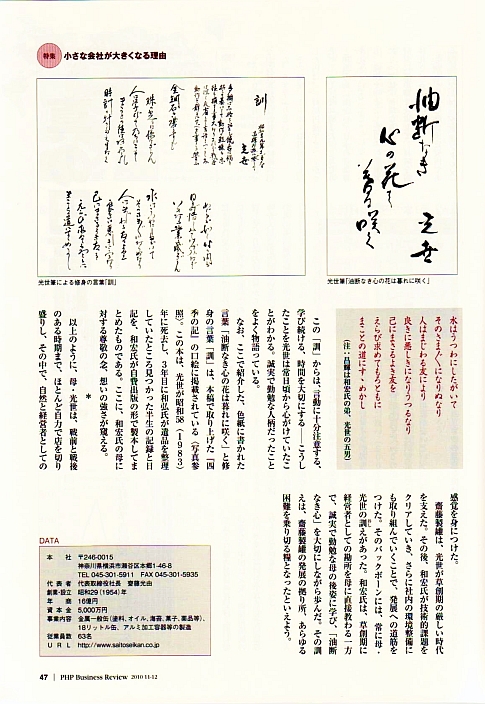 特集 小さな会社が大きくなる理由
訓
光世
油断なき
心の花は
暮に咲く
光世
光世筆による修身の言葉「訓」
光世筆「油断なき心の花は暮れに咲く」
水はうつわにしたがいて
そのさまざまになりぬなり
人はまじわる友により
良きに悪しきになりうつるなり
己にまさるよき友を
えらび求めてもろともに
まことの道にすゝめかし
(注・昌輝は和宏氏の弟、光世の五男)
この「訓」からは、言動に十分注意する、
学び続ける、時間を大切にする——こうし
たことを光世は常日頃から心がけていたこ
とがわかる。誠実で勤勉な人柄だったこと
をよく物語っている。
なお、ここで紹介した、色紙に書かれた
言葉「油断なき心の花は暮れに咲く」と修
身の言葉「訓」は、本稿で取り上げた『四
季の記』の口絵に掲載されている(写真参
照)。この本は、光世が昭和58(1983)
年に死去し、3年目に和弘氏が遺品を整理
していたところ見つかった半生の記録と日
記を、和宏氏が自費出版の形で製本してま
とめたものである。ここに、和宏氏の母に
対する尊敬の念、想いの強さが窺える。
*
以上のように、母・光世は、戦前と戦後
のある時期まで、ほとんど自力で店を切り
盛りし、その中で、自然と経営者としての
感覚を身につけた。
齋藤製罐は、光世が草創期の厳しい時代
を支えた。その後、和宏氏が技術的課題を
クリアしていき、さらに社内の環境整備に
も取り組んでいくことで、発展への道筋を
つけた。そのバックボーンには、常に母・
光世の訓えがあった。和宏氏は、草創期に
経営者としての勘所を母に直接教わる一方
で、誠実で勤勉な母の後姿に学び、「油断
なき心」を大切にしながら歩んだ。その訓
えは、齋藤製罐の発展の拠り所、あらゆる
困難を乗り切る糧となったといえよう。
DATA
本社 〒246-0015
神奈川県横浜市瀬谷区本郷1-46-8
TEL 045-301-5911 FAX 045-301-5935
代表者 代表取締役社長 齋藤光由
創業・設立 昭和29(1954)年
年商 16億円
資本金 5,000万円
事業内容 金属一般缶(塗料、オイル、海苔、菓子、薬品等)、
18リットル缶、アルミ加工容器等の製造
従業員数 63名
URL http://www.saitoseikan.co.jp
47 PHP Business Review 2010 11-12